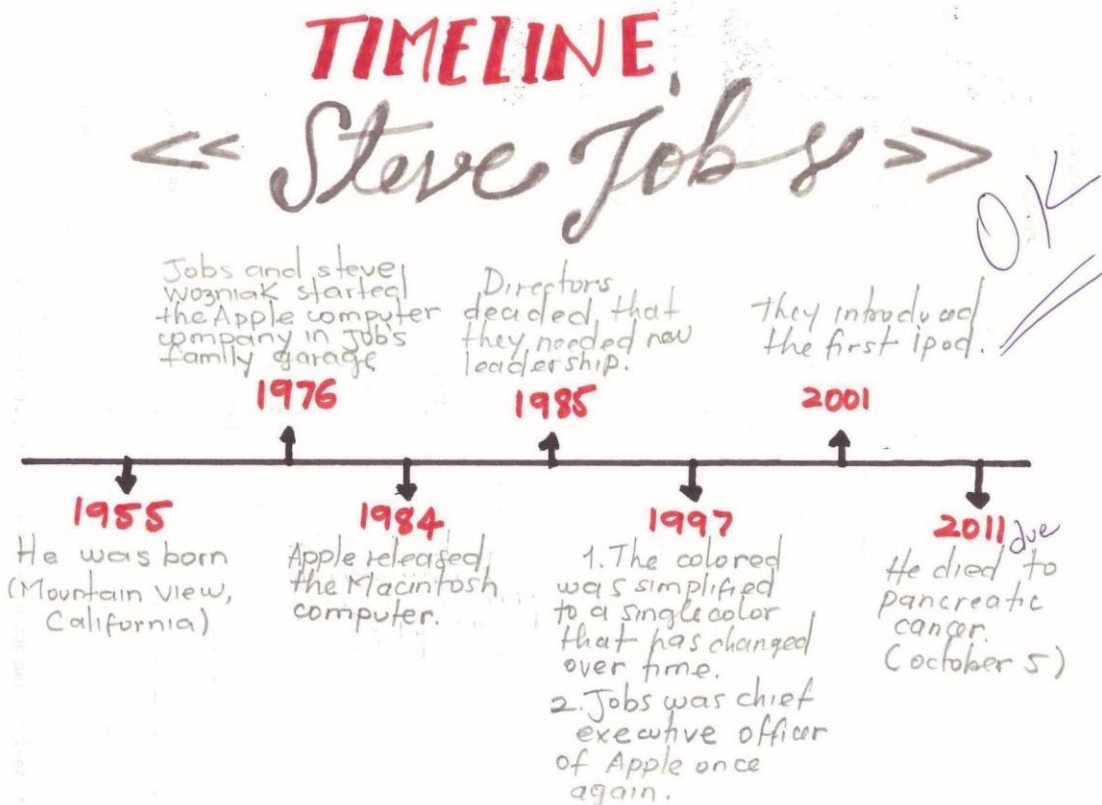 TIMELINE
<< Steve Jobs >>
O.K
Jobs and steve
Wozniak started
the Apple computer
company in Job's
family garage
1976
Directors
decided, that
they needed new
leadership.
1985
They introduced
the first ipod.
2001
1955
He was born
(Mountain view,
California)
1984
Apple released
the Macintosh
computer.
1997
1. The colored
was simplified
to a single color
that has changed
over time.
2. Jobs was chief
executive officer
of Apple once
again.
2011
due
He died to
pancreatic
cancer.
(october 5)